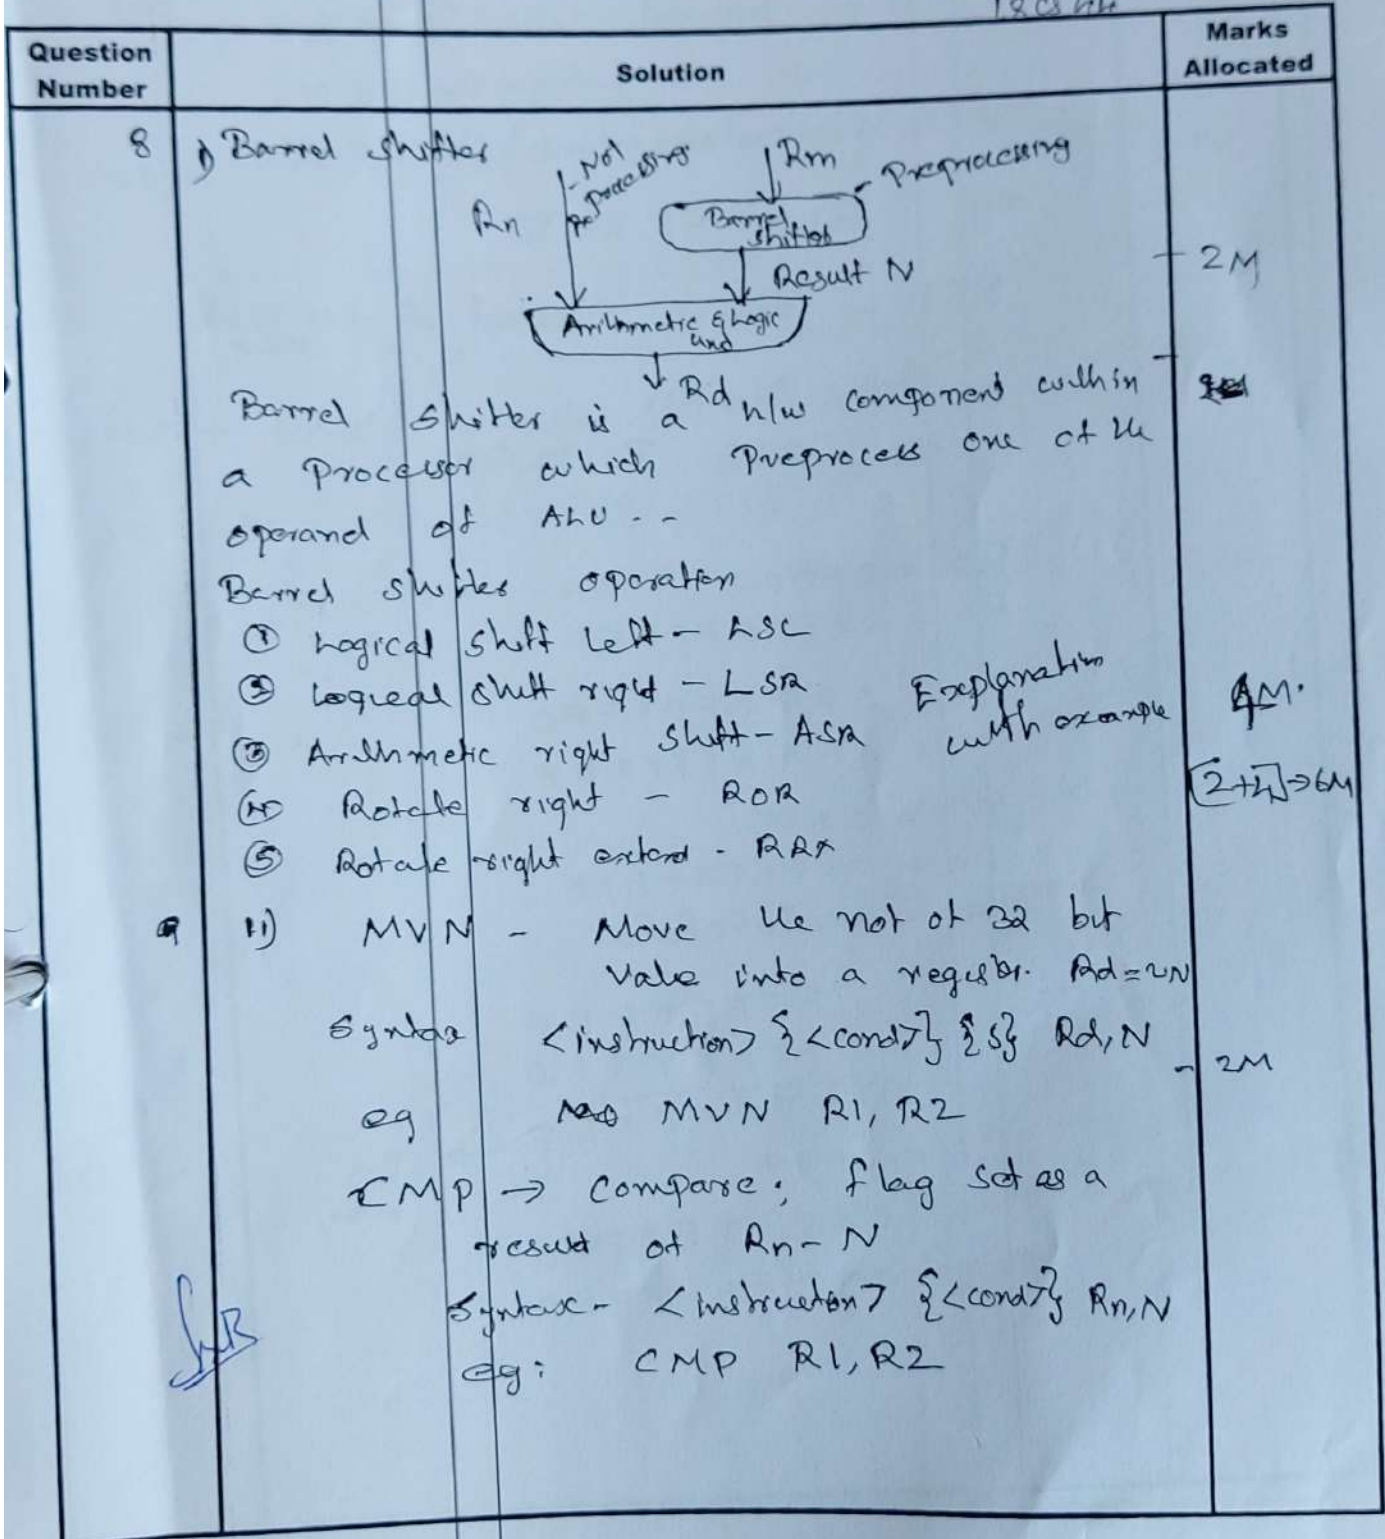 18CS44
Question Number
Solution
Marks Allocated
8
i) Barrel shifter
Rn
Not Preprocessing
Rm
Preprocessing
Barrel shifter
Result N
2M
Arithmetic & Logic unit
Rd
Barrel shifter is a h/w component within
a Processor which Preprocess one of the
operand of ALU - -
Barrel shifter operation
① Logical shift left - LSL
② Logical shift right - LSR
③ Arithmetic right shift - ASR
Explanation with example
4M.
④ Rotate right - ROR
[2+4]→6M
⑤ Rotate right extend - RRX
ii) MVN - Move the not of 32 bit
value into a register. Rd=~N
Syntax <instruction> {<cond>} {S} Rd, N
- 2M
eg MVN R1, R2
CMP → Compare; flag set as a
result of Rn - N
Syntax - <instruction> {<cond>} Rn, N
eg: CMP R1, R2